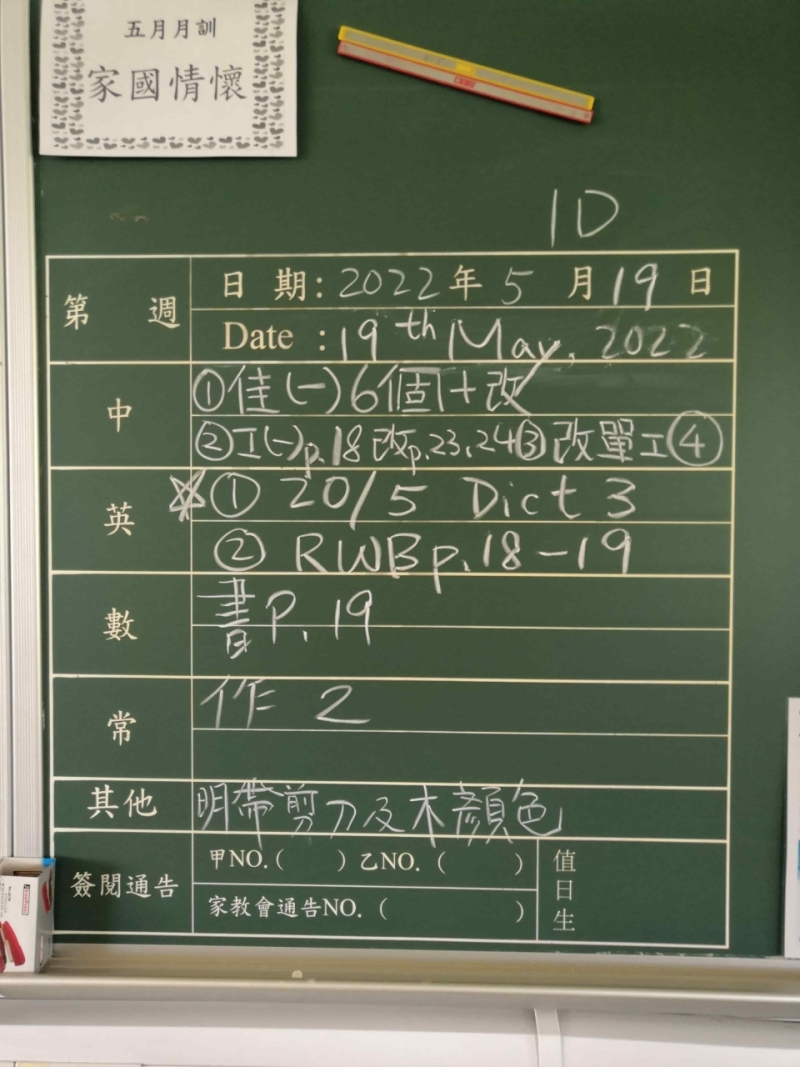 五月月訓
家國情懷
1D
第 週
日 期: 2022 年 5 月 19 日
Date : 19th May, 2022
中
①佳(一)6個1+改
②工(一)p.18改p.23,24③改單工④
英
☆① 20/5 Dict 3
② RWB p.18-19
數
書P.19
常
作 2
其他
明帶剪刀及木顏色
簽閱通告
甲NO.( ) 乙NO. ( )
家教會通告NO. ( )
值日生